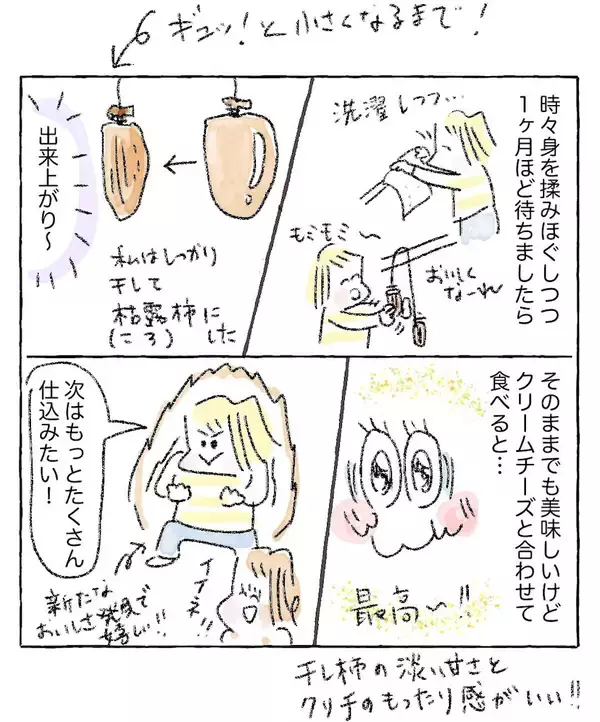 ギュッ！と小さくなるまで！
時々身を揉みほぐしつつ
1ヶ月ほど待ちましたら
洗濯しつつ…
モミモミ〜
おいしく
な〜れ
出来上がり〜
私はしっかり
干して
枯露柿に
(ころ) した
そのままでも美味しいけど
クリームチーズと合わせて
食べると…
最高〜!!
次はもっとたくさん
仕込みたい！
イイネ!!
新たな
おいしさ発見で
嬉しい!!
干し柿の淡い甘さと
クリチのもったり感がいい!!